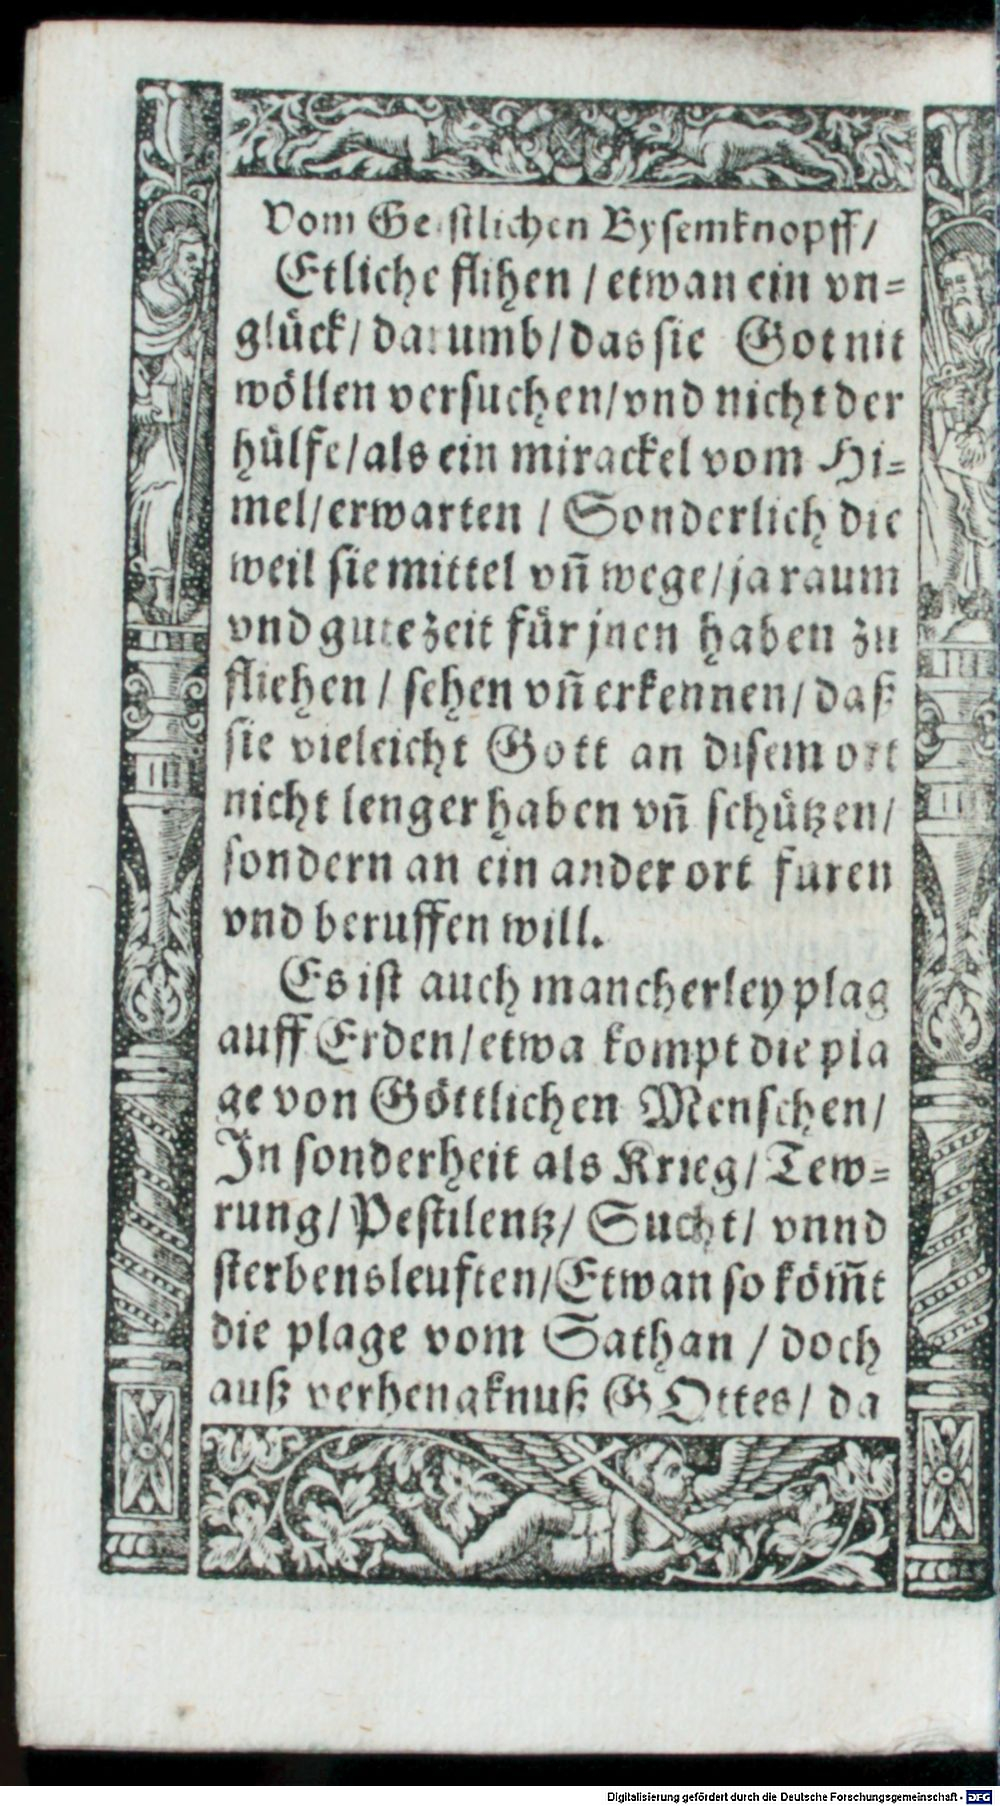 Vom Geistlichen Bysemknopff/
Etliche flihen / etwan ein vn=
glück/ darumb/ das sie Got nit
wöllen versuchen/ vnd nicht der
hülfe/ als ein mirackel vom Hi=
mel/ erwarten / Sonderlich die
weil sie mittel vñ wege/ ja raum
vnd gute zeit für jnen haben zu
fliehen / sehen vñ erkennen/ daß
sie vieleicht Gott an disem ort
nicht lenger haben vñ schützen/
sondern an ein ander ort furen
vnd beruffen will.
Es ist auch mancherley plag
auff Erden/ etwa kompt die pla
ge von Göttlichen Menschen/
In sonderheit als Krieg/ Tew=
rung/ Pestilentz/ Sucht/ vnnd
sterbensleuften/ Etwan so köm̃t
die plage vom Sathan / doch
auß verhengknuß GOttes/ da
Digitalisierung gefördert durch die Deutsche Forschungsgemeinschaft - DFG